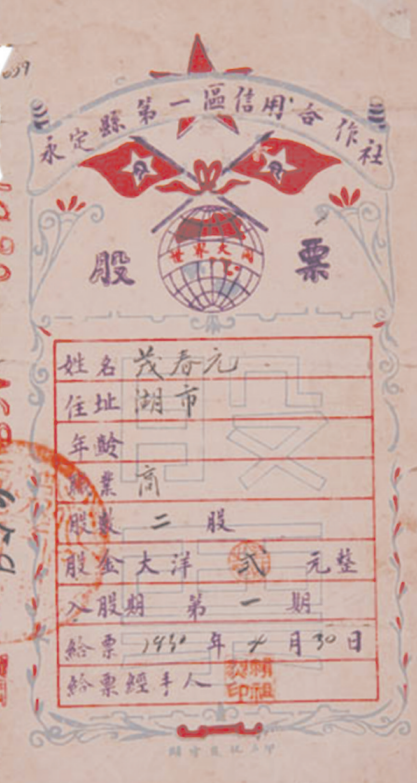 永定縣第一區信用合作社
世界大同
股票
姓名 茂春元
住址 湖市
年齡
職業 商
股數 二 股
股金大洋 弍 元整
入股期 第 一 期
給票 1930 年 4 月 30 日
給票經手人